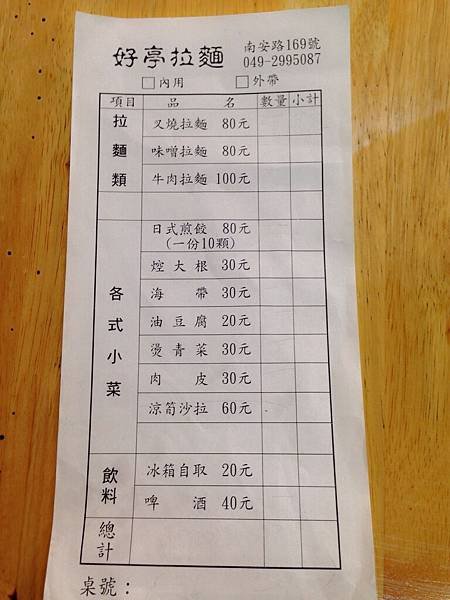 好亭拉麵
南安路169號
049-2995087
□內用 □外帶
項目 品名 數量 小計
拉麵類
叉燒拉麵 80元
味噌拉麵 80元
牛肉拉麵 100元
各式小菜
日式煎餃 80元
(一份10顆)
焢大根 30元
海帶 30元
油豆腐 20元
燙青菜 30元
肉皮 30元
涼筍沙拉 60元
飲料
冰箱自取 20元
啤酒 40元
總計
桌號：